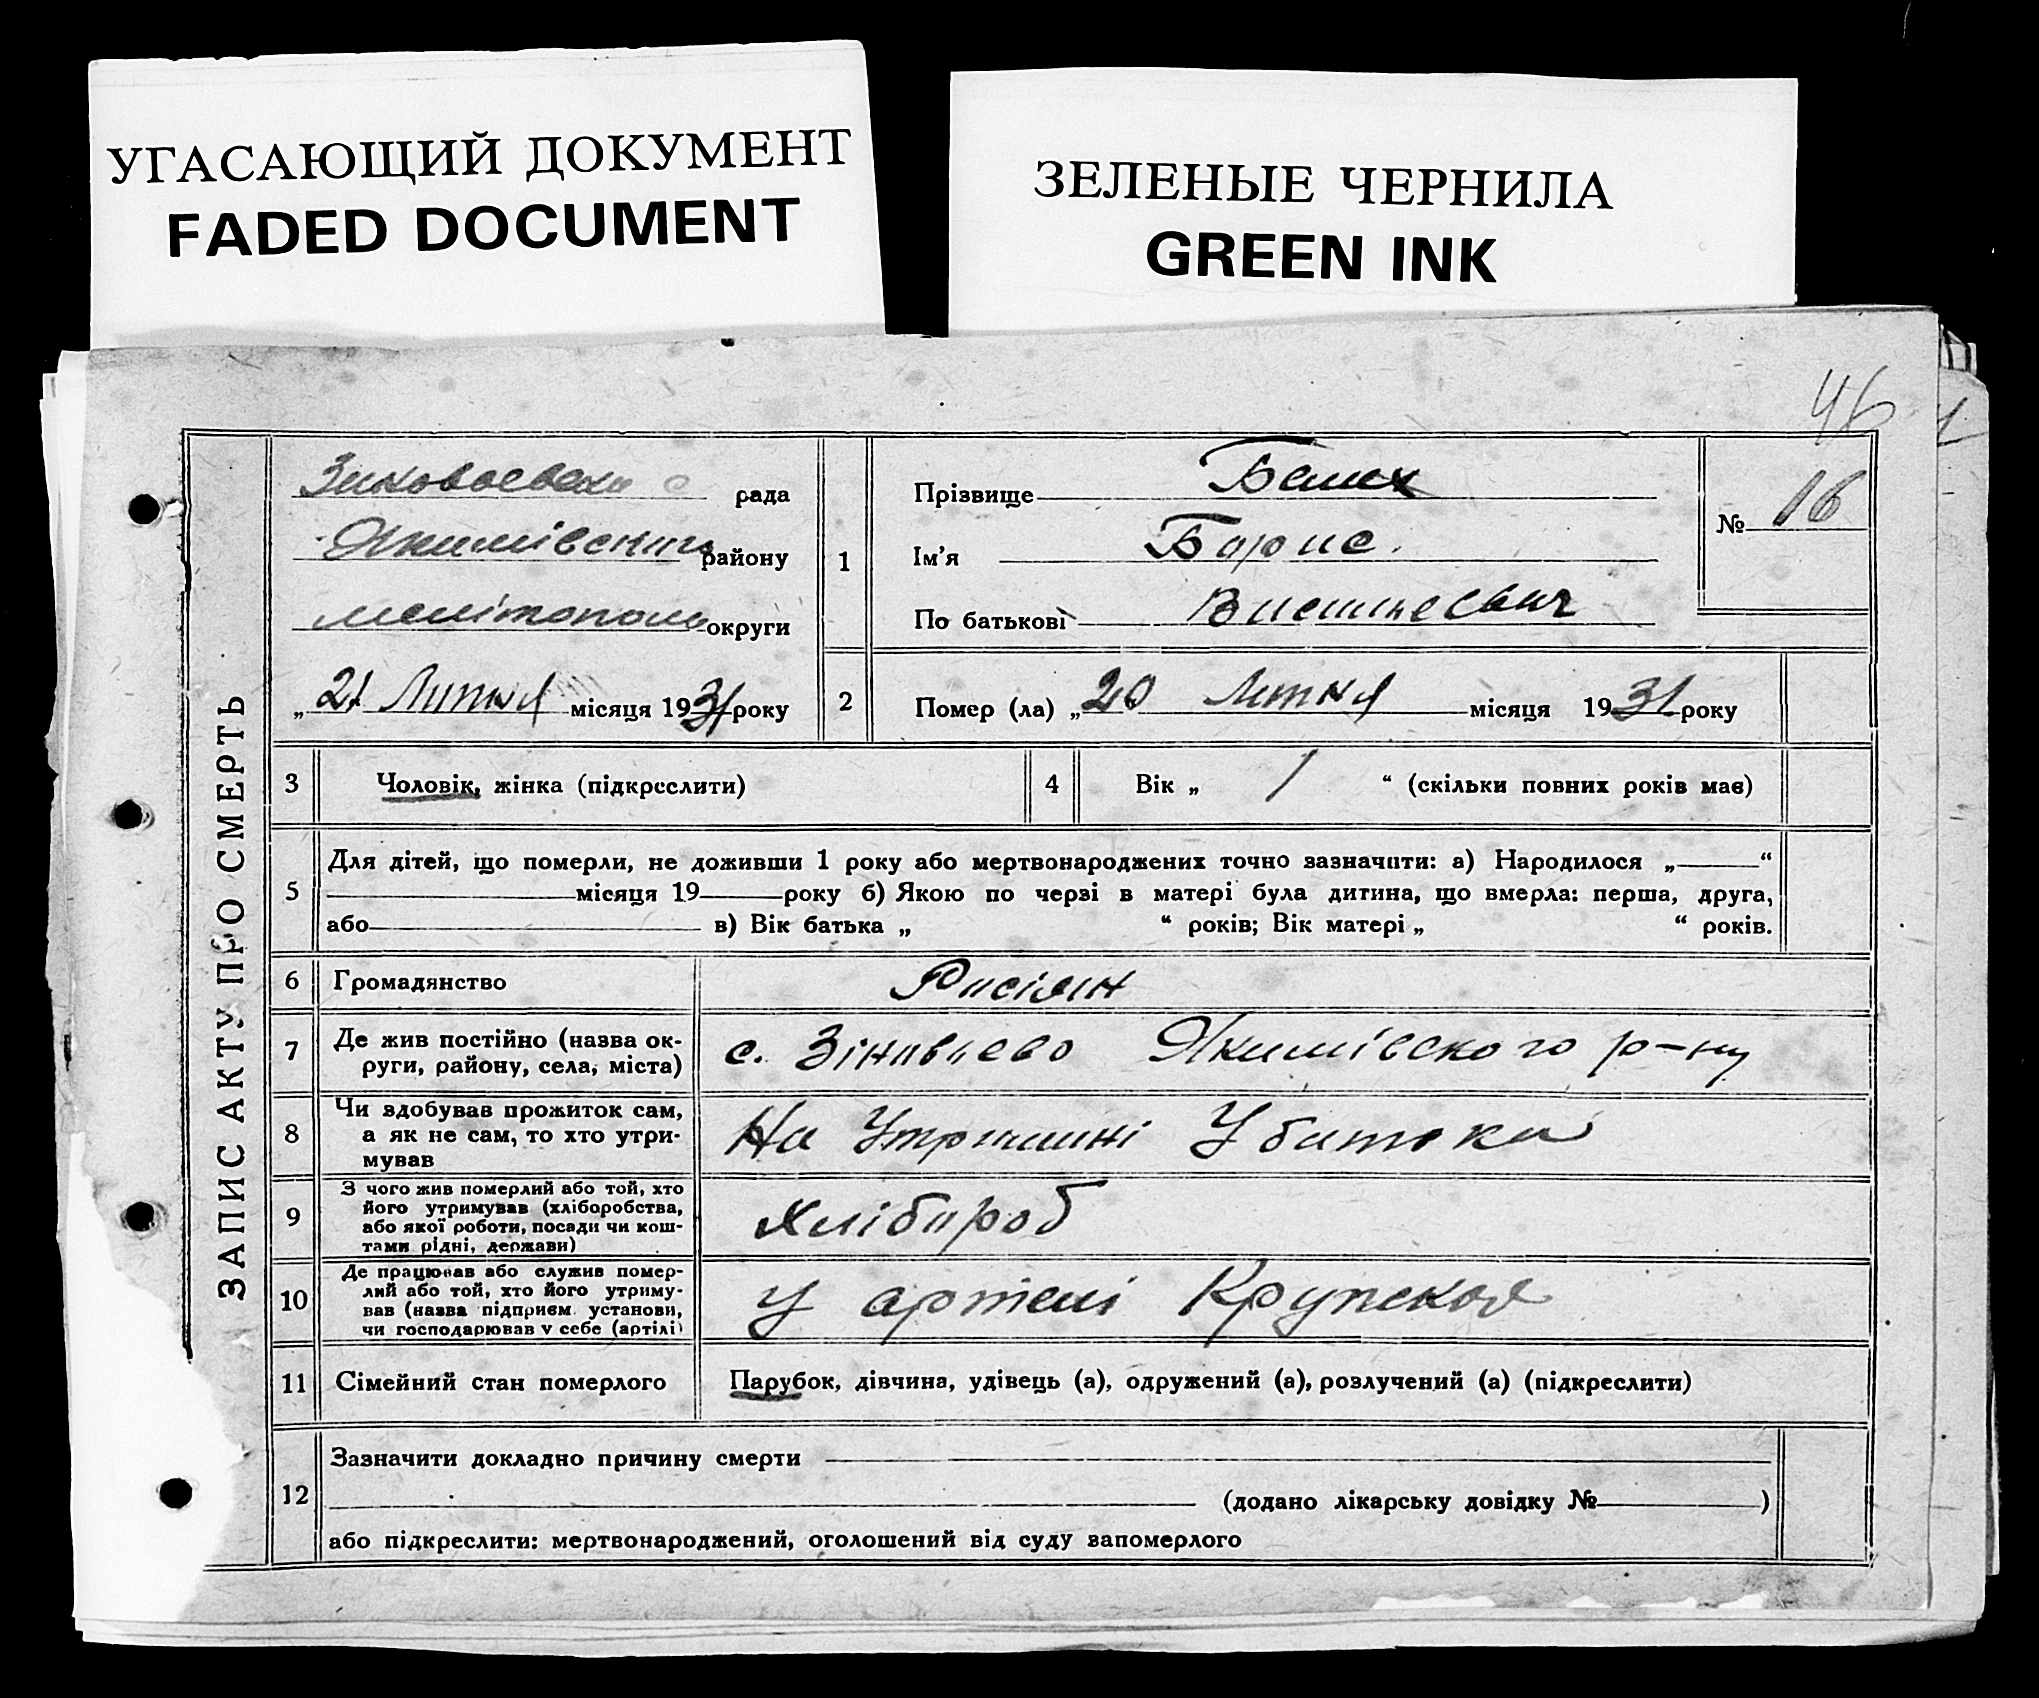 УГАСАЮЩИЙ ДОКУМЕНТ
FADED DOCUMENT
ЗЕЛЕНЫЕ ЧЕРНИЛА
GREEN INK
46
ЗАПИС АКТУ ПРО СМЕРТЬ
рада
Якимівського району
округи
„21 Липня місяця 1931 року
1
Прізвище Белих
Ім'я Борис.
По батькові
№ 16
2
Помер (ла) „20 Липня місяця 1931 року
3
Чоловік, жінка (підкреслити)
4
Вік „ 1 “ (скільки повних років має)
5
Для дітей, що померли, не доживши 1 року або мертвонароджених точно зазначити: а) Народилося „ “
місяця 19 року б) Якою по черзі в матері була дитина, що вмерла: перша, друга,
або в) Вік батька „ “ років; Вік матері „ “ років.
6
Громадянство
Росіян
7
Де жив постійно (назва ок-
руги, району, села, міста)
с. Зіновьево Якимівського р-ну
8
Чи здобував прожиток сам,
а як не сам, то хто утри-
мував
На Утриманні У батька
9
З чого жив померлий або той, хто
його утримував (хліборобства,
або якої роботи, посади чи кош-
тами рідні, держави)
Хлібороб
10
Де працював або служив помер-
лий або той, хто його утриму-
вав (назва підприєм. установи,
чи господарював у себе (артілі)
У артелі Крупская
11
Сімейний стан померлого
Парубок, дівчина, удівець (а), одружений (а), розлучений (а) (підкреслити)
12
Зазначити докладно причину смерти
(додано лікарську довідку № )
або підкреслити: мертвонароджений, оголошений від суду запомерлого